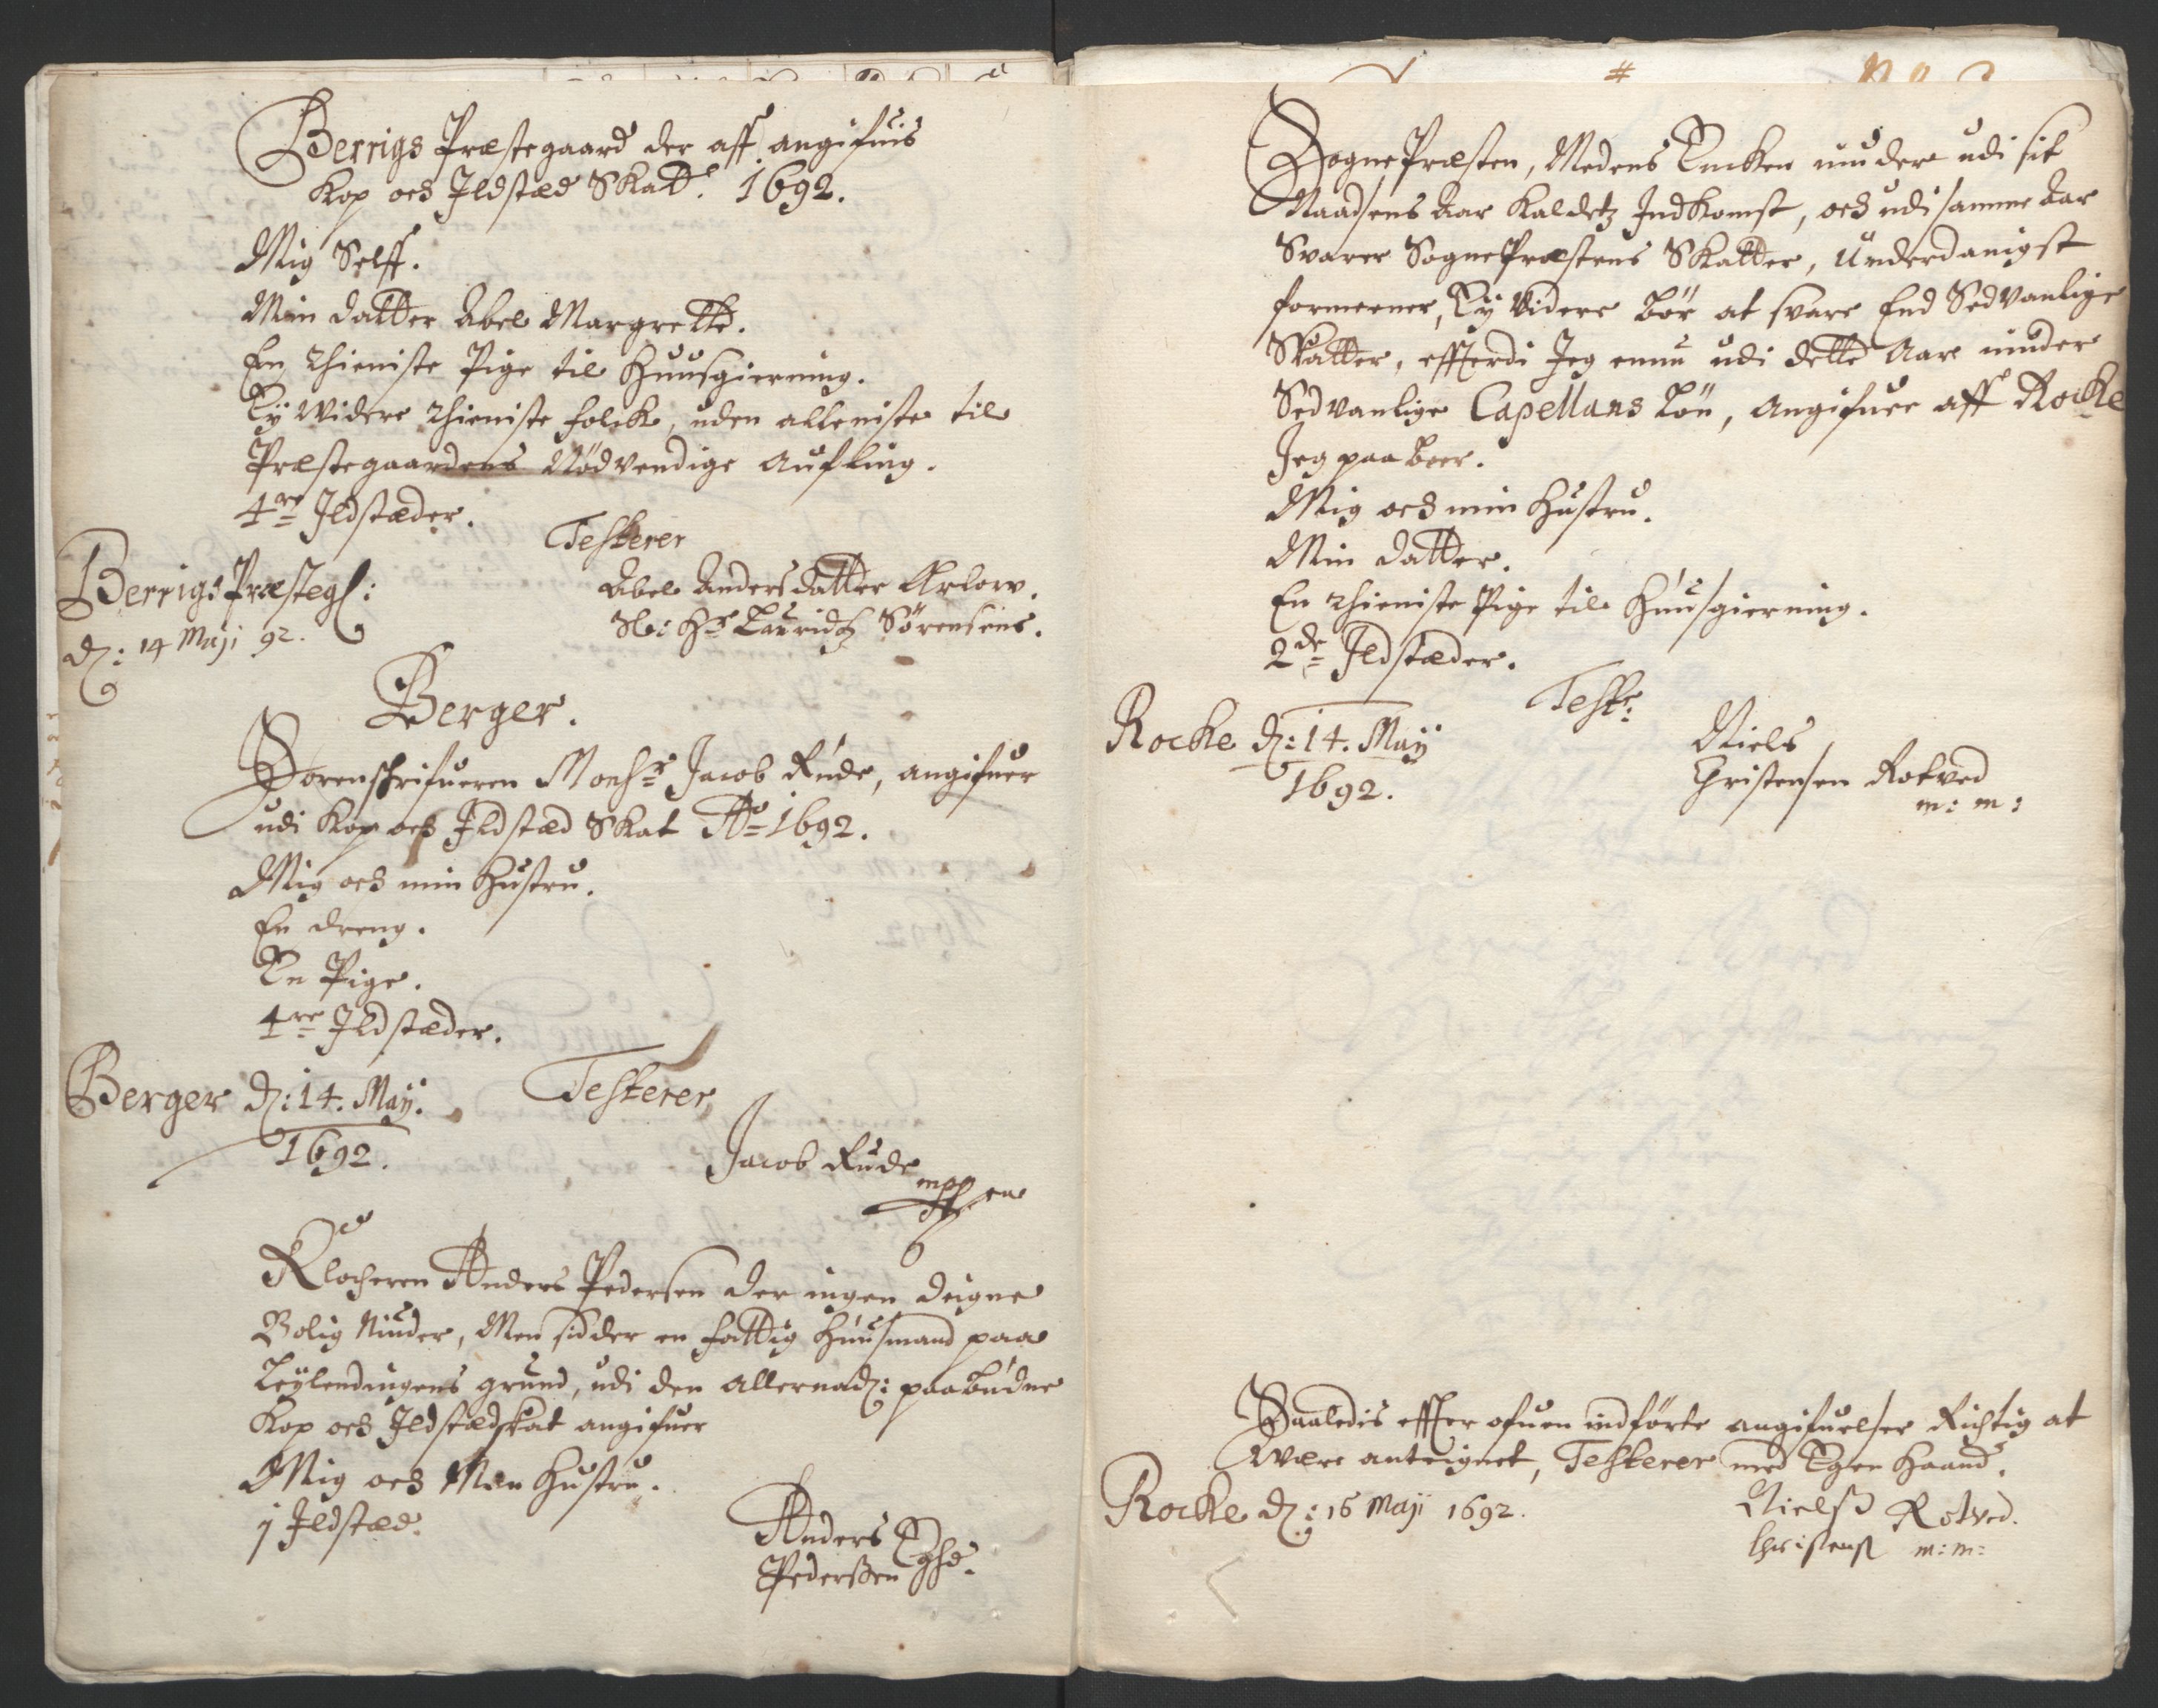 Berrigs Præstegaard der aff angifuis
Kop och Jldstæd Skatt. 1692.
Mig Selff.
Min datter Abel Margrette.
En thieniste Pige til Huusgierning.
Ey widere thieniste folck, uden alleniste til
Præstegaardens Nödvendige Aufling.
4re Jldstæder.
Testerer
Abel Andersdatter Arlow.
Sl: Hr Lauridtz Sörensens.
Berrigs Præsteg:
d: 14 Maji 92.
Berger.
Sorenschrifueren Monsr Jacob Rude, angifuer
udi Kop och Jldstæd Skat Ao 1692.
Mig och min Hustru.
En dreng.
En Pige.
4re Jldstæder.
Berger d: 14. Maij.
1692.
Testerer
Jacob Rude
mppria
Klocheren Anders Pedersen der ingen deigne
Bolig Niuder, Men sidder en fattig Huusmand paa
Leylendingens grund, udi den allernad: paabudne
Kop och Jldstædskat angifuer
Mig och Min Hustru.
1 Jldstæd.
Anders
Pederssen Eghd.
SognePræsten, Medens Encken niuder udi sit
Naadsens Aar Kaldetz JndKomst, och udi samme Aar
Svarer SognePræstens Skatter, Underdanigst
formeener, Ey Videre bör at svare End Sedvanlige
Skatter, effterdi Jeg ennu udi dette Aar niuder
Sedvanlige Capellans Lön, Angifuer aff Rocke
Jeg paa boer.
Mig och min Hustru.
Min datter.
En thieniste Pige til Huusgierning.
2de Jldstæder.
Testr:
Rocke d: 14. Maij
1692.
Niels
Christensen Rotved
m: m:
Saaledis effter ofuen indförte angifuelser Richtig at
Være anteignet, Testerer med Egen Haand.
Rocke d: 16 Maji 1692.
Nielss Rotved.
Christenss m: m: